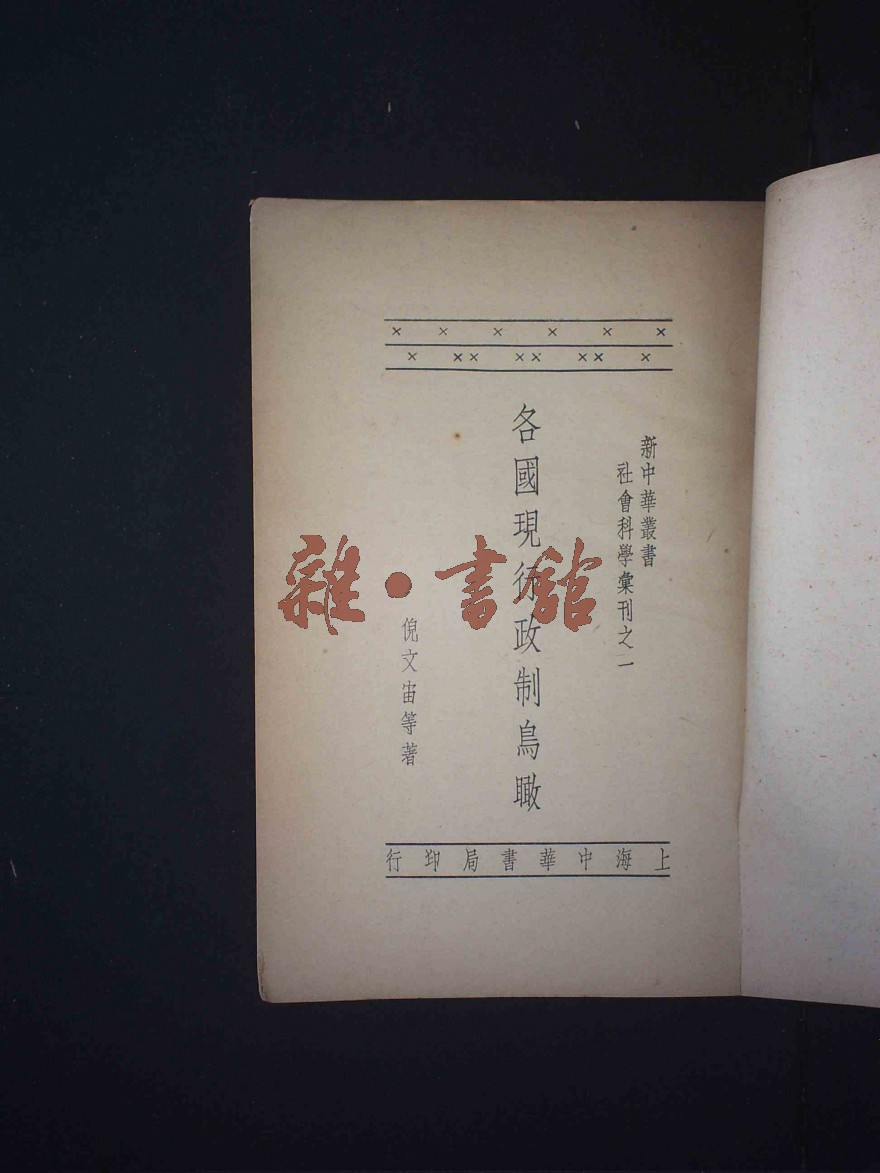 新中華叢書
社會科學彙刊之一
各國現行政制鳥瞰
倪文宙等著
上海中華書局印行
雜·書館